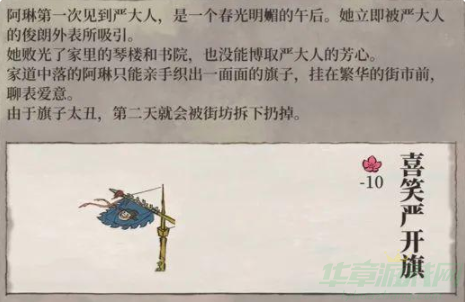 阿琳第一次见到严大人，是一个春光明媚的午后。她立即被严大人
的俊朗外表所吸引。
她败光了家里的琴楼和书院，也没能博取严大人的芳心。
家道中落的阿琳只能亲手织出一面面的旗子，挂在繁华的街市前，
聊表爱意。
由于旗子太丑，第二天就会被街坊拆下扔掉。
喜笑严开旗
-10
华章游戏网